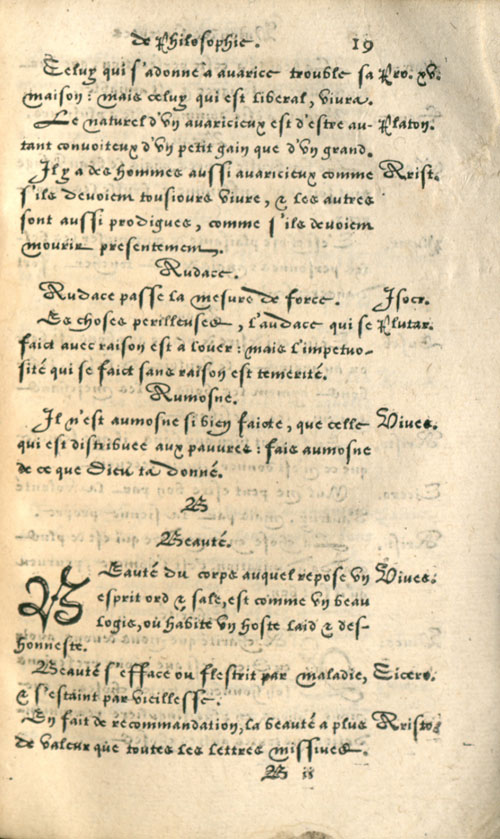 de Philosophie. 19
Celuy qui s'adonne a avarice trouble sa Pro. xv.
maison: mais celuy qui est liberal, vivra.
Le naturel d'vn avaricieux est d'estre au- Platon.
tant convoiteux d'vn petit gain que d'vn grand.
Il y a des hommes aussi avaricieux comme Arist.
s'ils devoient tousiours vivre, & les autres
sont aussi prodigues, comme s'ils devoient
mourir presentement.
Audace.
Audace passe la mesure de force. Isocr.
Es choses perilleuses, l'audace qui se Plutar.
faict avec raison est à louer: mais l'impetuo-
sité qui se faict sans raison est temerité.
Aumosne.
Il n'est aumosne si bien faicte, que celle Vives.
qui est distribuee aux pauvres: fais aumosne
de ce que Dieu t'a donné.
B
Beauté.
Beauté du corps auquel repose vn Vives.
esprit ord & sale, est comme vn beau
logis, où habite vn hoste laid & des-
honneste.
Beauté s'efface ou flestrit par maladie, Cicero.
& s'estaint par vieillesse.
En fait de recommandation, la beauté a plus Aristo.
de valeur que toutes les lettres missives.
B ii